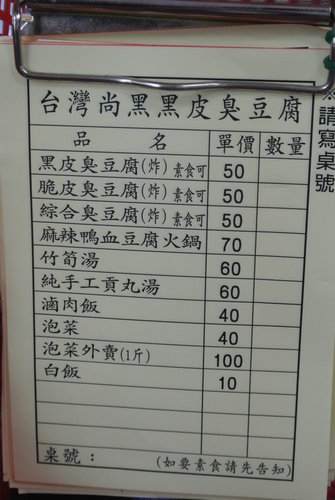 台灣尚黑黑皮臭豆腐
品 名 單價 數量
黑皮臭豆腐(炸) 素食可 50
脆皮臭豆腐(炸) 素食可 50
綜合臭豆腐(炸) 素食可 50
麻辣鴨血豆腐火鍋 70
竹筍湯 60
純手工貢丸湯 60
滷肉飯 40
泡菜 40
泡菜外賣(1斤) 100
白飯 10
桌號： (如要素食請先告知)
※請寫桌號